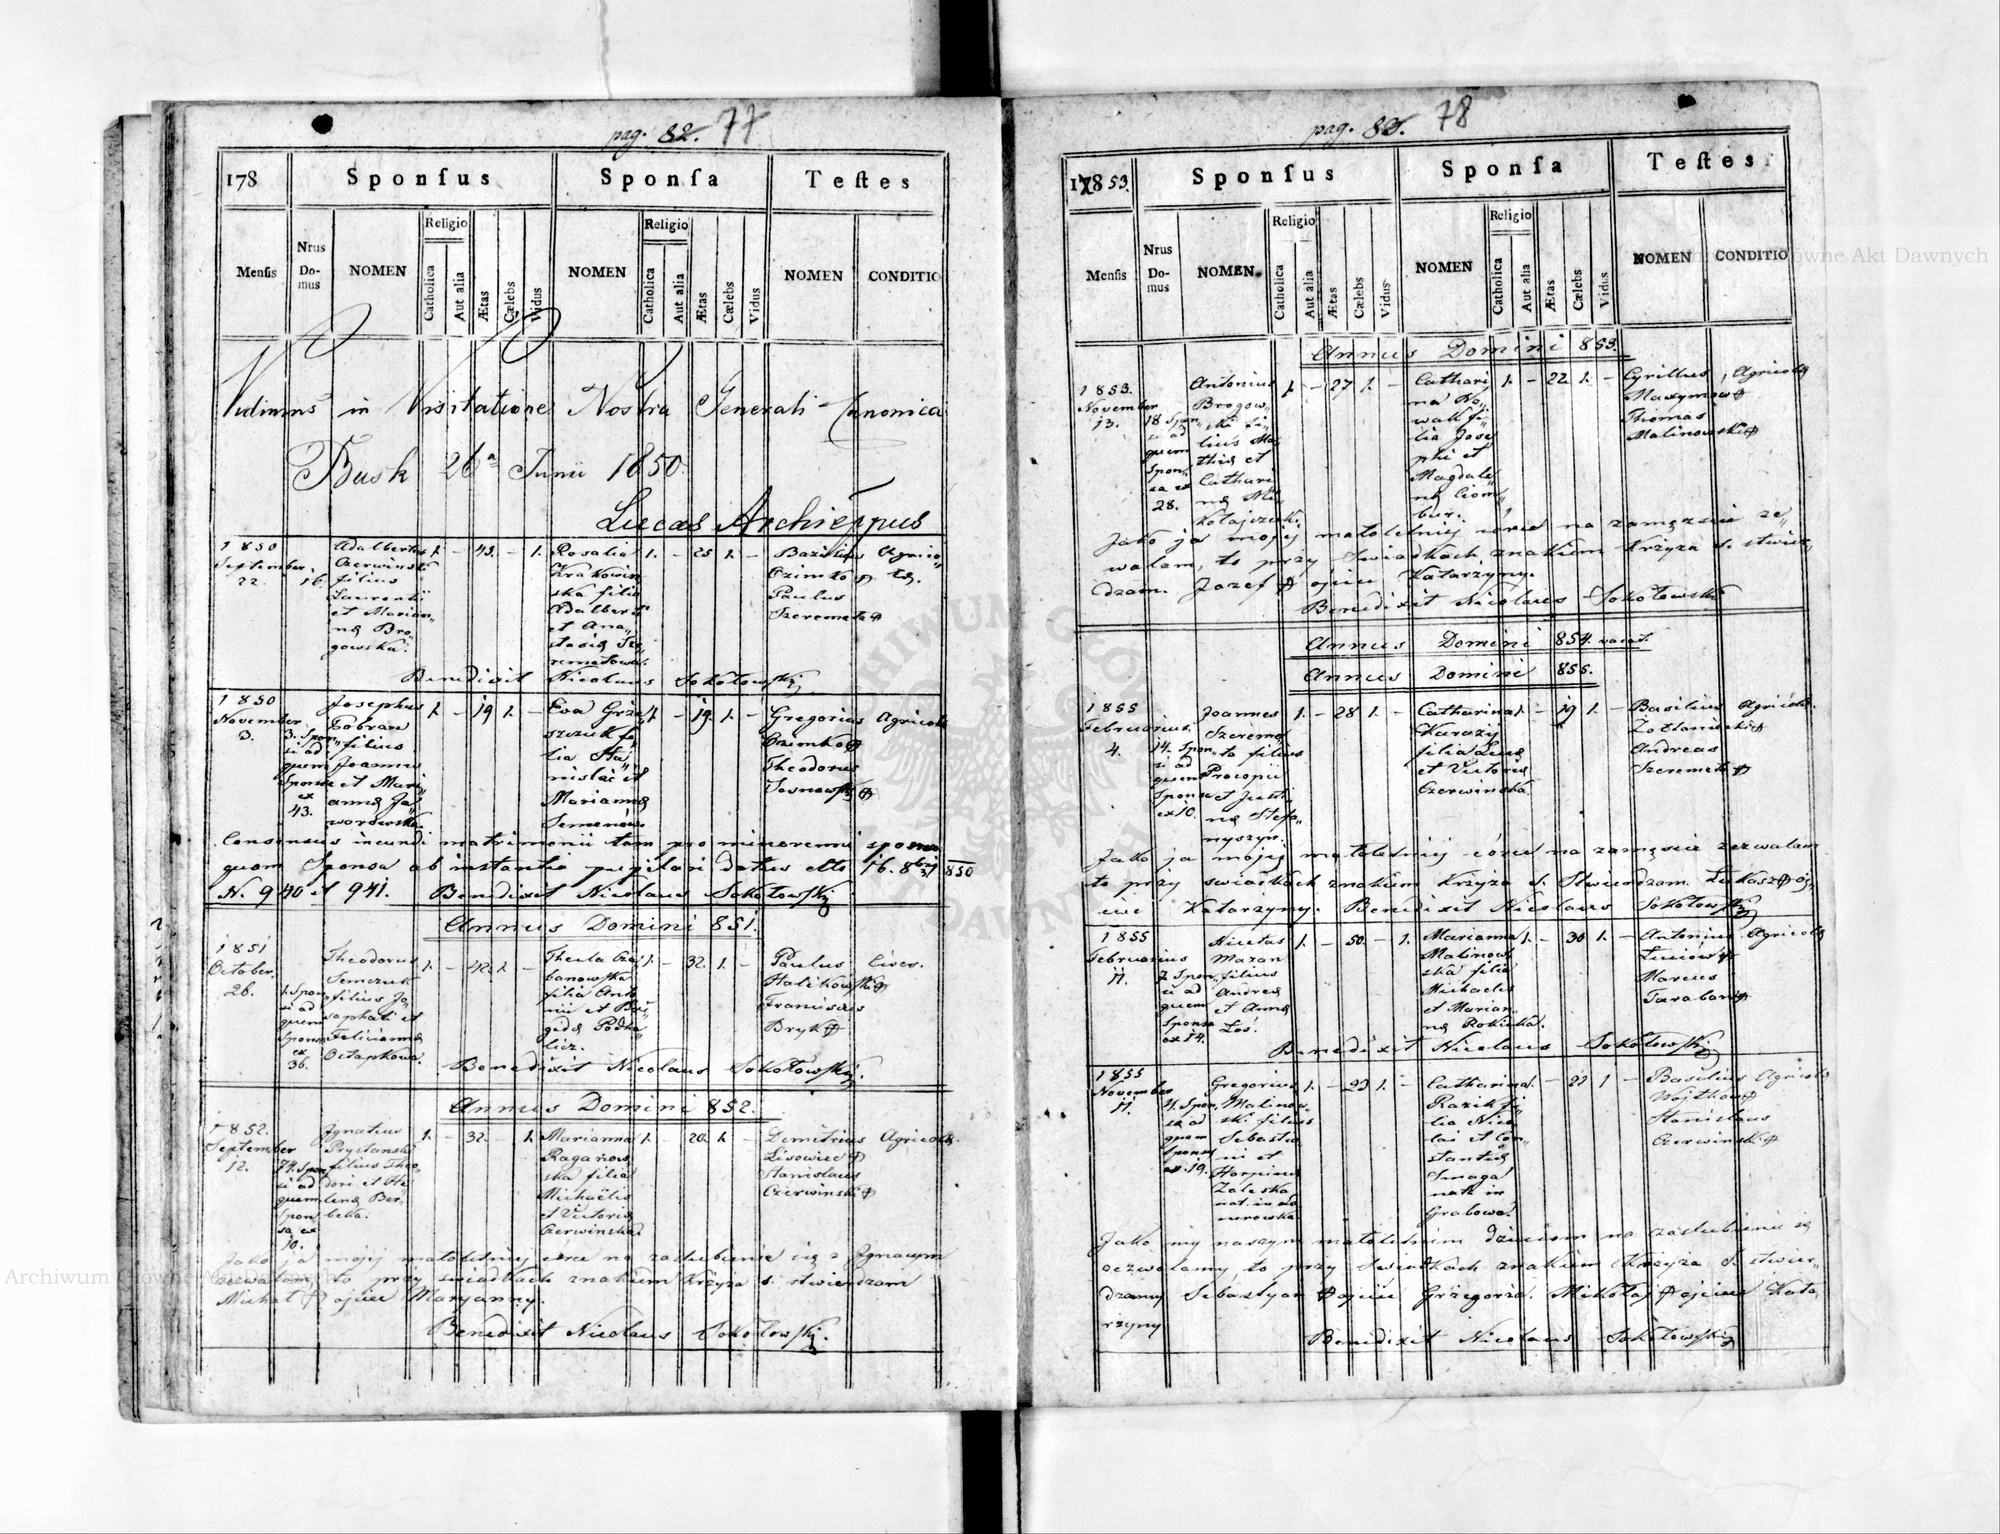 pag. 82. 77
178 Sponſus Sponſa Teſtes
Menſis Nrus Do-mus NOMEN Religio Catholica Aut alia Ætas Cælebs Vidus NOMEN Religio Catholica Aut alia Ætas Cælebs Vidus NOMEN CONDITIO
Vidimus in Visitatione Nostra Generali Canonica
Busk 26a Junii 1850.
Lucas Archieppus
1850
September
22.
16.
Adalbertus
Czerwinski
filius
Laurentii
et Marian
næ Bro„
gowska.
1. – 43. – 1.
Rosalia
Krakowin
ska filia
Adalberti
et Ana„
stasiæ Sze
remetowa.
1. – 25 1. –
Basilius Agrico„
Czimko læ.
Paulus
Szeremeta
Benedixit Nicolaus Sokołowski
1850
November
3.
3. Spon„
si ad
quem
Sponsa
ex
43.
Josephus
Fobran
filius
Joannis
et Mari„
annæ Ja„
worowska
1. – 19 1. –
Eva Grze
szczuk fi„
lia Sta„
nislai et
Mariannæ
Semenów
1. – 19. 1. –
Gregorius Agricolæ
Czimko
Theodorus
Sosnowski
Consensus ineundi matrimonii tam pro minorenni sponso
quam Sponsa ab instantia pupilari datus dto 16. 8bris 850
N. 940 et 941. Benedixit Nicolaus Sokołowski
Annus Domini 851.
1851
October
26.
1. Spon
si ad
quem
Sponsa
ex
36.
Theodorus
Semczuk
filius Jo„
saphati et
Felicianna
Ostapkowa.
1. – 42. 1. –
Thecla Cza„
banowska
filia Anto
nii et Bri
gidæ Podha
licz.
1. – 32. 1. –
Paulus Cives.
Halikowski
Franciscus
Bryk
Benedixit Nicolaus Sokołowski.
Annus Domini 852.
1852.
September
12.
74. Spon
si ad
quem
Spon
sa ex
10.
Ignatius
Prystanski
filius Theo„
dori et He
lenæ Ber„
beka.
1. – 32. – 1.
Marianna
Raganow
ska filia
Michaëlis
et Victoriæ
Czerwinska.
1. – 20. 1. –
Demetrius Agricolæ.
Lisowiec
Stanislaus
Czerwinski
Jako ja mojej małoletniej córce na zaślubienie się z Ignacym
zezwalam, to przy świadkach znakiem Krzyża S. stwierdzam
Michał ojciec Maryanny.
Benedixit Nicolaus Sokołowski.
pag. 83. 78
17853. Sponſus Sponſa Teſtes
Menſis Nrus Do-mus NOMEN Religio Catholica Aut alia Ætas Cælebs Vidus NOMEN Religio Catholica Aut alia Ætas Cælebs Vidus NOMEN CONDITIO
Annus Domini 853.
1853.
November
13.
18 Spon„
si ad
quem
Spon„
sa ex
28.
Antonius
Brogow„
ski fi„
lius Ma„
thiæ et
Cathari
næ Mi„
kołajczuk.
1. – 27 1. –
Cathari
na No„
wak fi„
lia Jose
phi et
Magdale
næ Ciom„
bur.
1. – 22. 1. –
Cyrillus, Agricolæ
Maxymow
Thomas
Malinowski
Jako ja mojej małoletniej córce na zamęzcie ze„
walam, to przy świadkach znakiem Krzyża S. stwier„
dzam. Jozef ojciec Katarzyny.
Benedixit Nicolaus Sokołowski
Annus Domini 854. vacat.
Annus Domini 855.
1855
Februarius.
4.
14. Spon„
si ad
quem
Sponsa
ex 10.
Joannes
Szereme„
ta filius
Procopii
et Justi„
næ Stefa„
nyszyn.
1. – 28 1. –
Catharina
Karaziy
filia Lucæ
et Victoriæ
Czerwinska.
1. – 19 1. –
Basilius Agricolæ.
Żołtaniecki
Andreas
Szeremeta
Jako ja mojej małoletniej córce na zamęscie zezwalam
to przy świadkach znakiem Krzyża S. Stwierdzam. Łukasz oj„
ciec Katarzyny. Benedixit Nicolaus Sokołowski
1855
Februarius
11.
7 Spon„
si ad
quem
Sponsa
ex 14.
Nicetas
Mazan
filius
Andreæ
et Annæ
Łos.
1. – 50. – 1.
Marianna
Malinow
ska filia
Michaelis
et Marian„
næ Rokicka.
1. – 30 1. –
Antonius Agricolæ
Łuciów
Marcus
Taraban
Benedixit Nicolaus Sokołowski
1855
November
11.
4. Spon„
si ad
quem
Sponsa
ex 19.
Gregorius
Malinow„
ski filius
Sebastia
ni et
Horpinæ
Zaleska
1. – 23 1. –
Catharina
Razik fi„
lia Nico
lai et Con„
stantiæ
Smaga
nati in
Grabowa.
1. – 22 1 –
Basilius Agricolæ
Wojtkow
Stanislaus
Czerwinski
Jako my naszym małoletnim dzieciom na zaślubienie się
zezwalamy to przy świadkach znakiem Krzyża S. stwier„
dzamy Sebastyan ojciec Grzegorza. Mikołaj ojciec Kata„
rzyny
Benedixit Nicolaus Sokołowski
Archiwum Główne Akt Dawnych